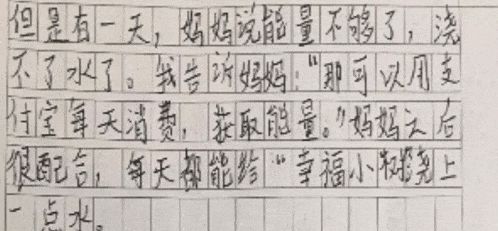 但是有一天，妈妈说能量不够了，浇
不了水了。我告诉妈妈："那可以用支
付宝每天消费，获取能量。"妈妈之后
很配合，每天都能给"幸福小树浇上
一点水。